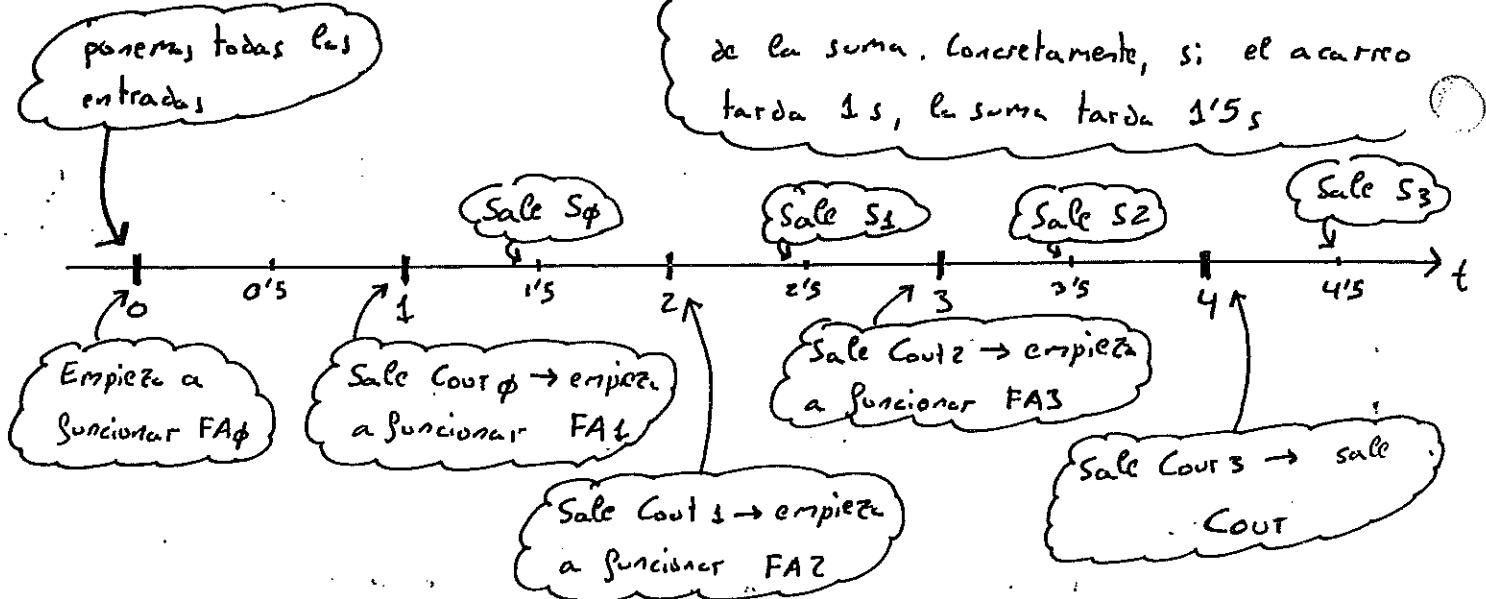 ponemos todas las
entradas
de la suma. Concretamente, si el acarreo
tarda 1 s, la suma tarda 1'5 s
Sale Sφ
Sale S1
Sale S2
Sale S3
0
0'5
1
1'5
2
2'5
3
3'5
4
4'5
t
Empieza a
funcionar FAφ
Sale Cout φ → empieza
a funcionar FA1
Sale Cout 1 → empieza
a funcionar FA2
Sale Cout 2 → empieza
a funcionar FA3
Sale Cout 3 → sale
COUT